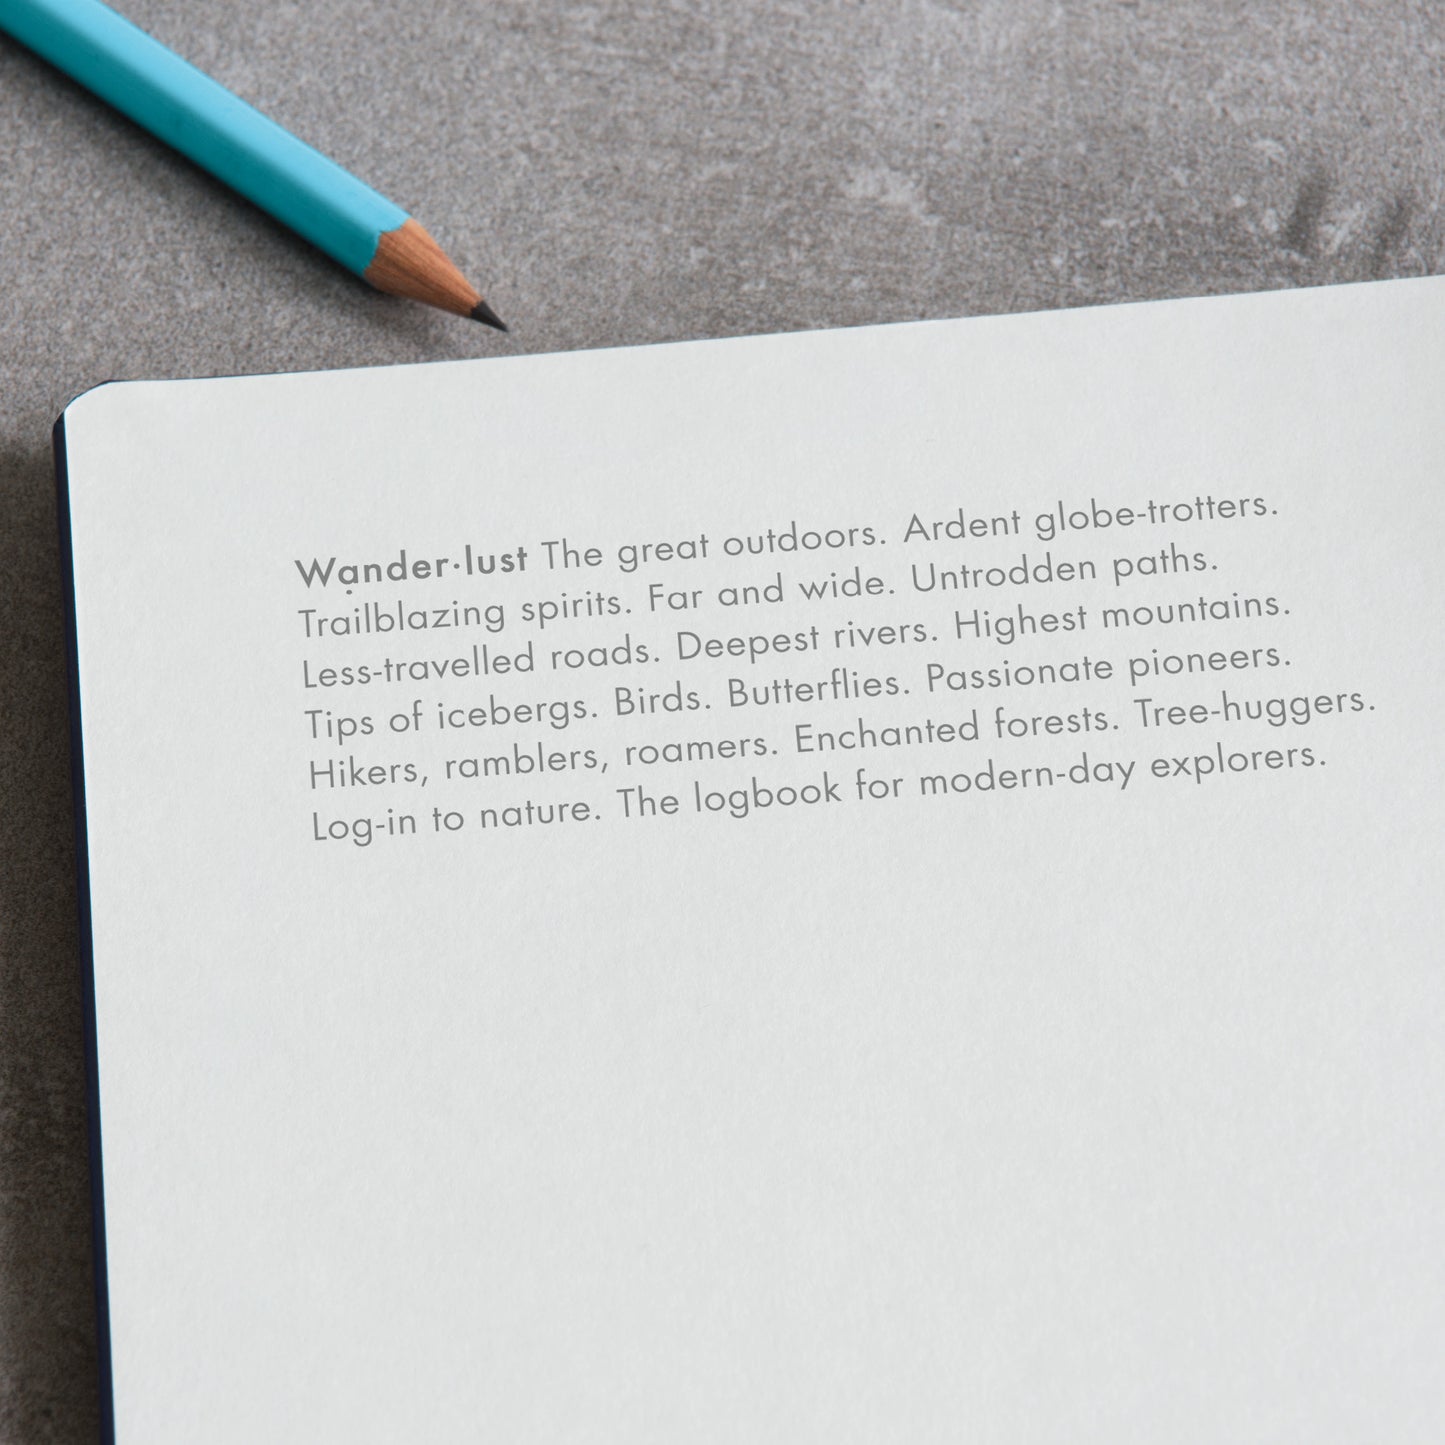 Wạnder·lust The great outdoors. Ardent globe-trotters.
Trailblazing spirits. Far and wide. Untrodden paths.
Less-travelled roads. Deepest rivers. Highest mountains.
Tips of icebergs. Birds. Butterflies. Passionate pioneers.
Hikers, ramblers, roamers. Enchanted forests. Tree-huggers.
Log-in to nature. The logbook for modern-day explorers.